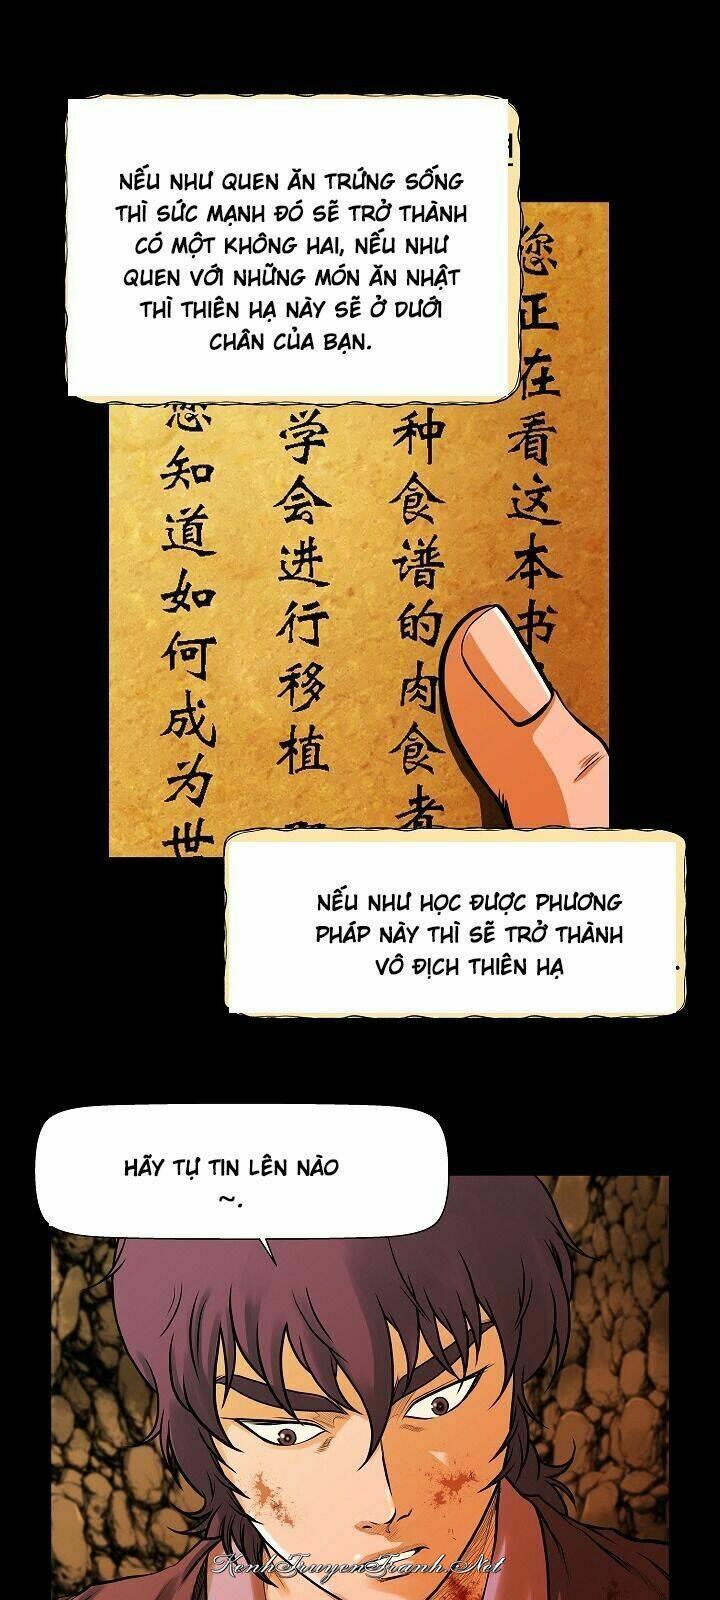 NẾU NHƯ QUEN ĂN TRỨNG SỐNG
THÌ SỨC MẠNH ĐÓ SẼ TRỞ THÀNH
CÓ MỘT KHÔNG HAI, NẾU NHƯ
QUEN VỚI NHỮNG MÓN ĂN NHẬT
THÌ THIÊN HẠ NÀY SẼ Ở DƯỚI
CHÂN CỦA BẠN.
您正在看这本书
种食谱的肉食者
学会进行移植
您知道如何成为世
NẾU NHƯ HỌC ĐƯỢC PHƯƠNG
PHÁP NÀY THÌ SẼ TRỞ THÀNH
VÔ ĐỊCH THIÊN HẠ
HÃY TỰ TIN LÊN NÀO
~.
KenhTruyenTranh.Net